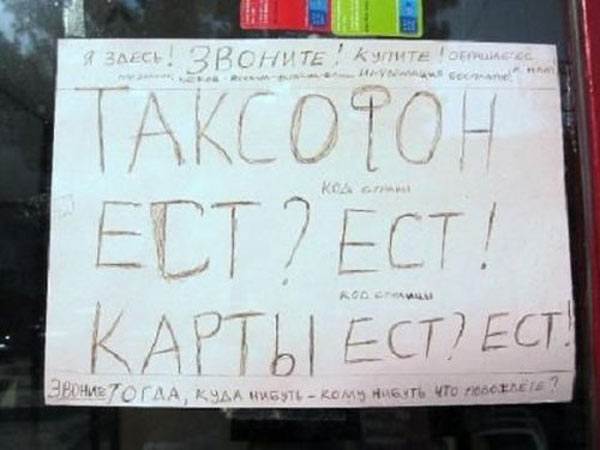 Я ЗДЕСЬ! ЗВОНИТЕ! КУПИТЕ! ОБРАЩАЕТЕС
ИНФОРМАЦИЯ БЕСПЛАТНО К НАМ!
ТАКСОФОН
КОД СТРАНЫ
ЕСТ? ЕСТ!
КОД СТОЛИЦЫ
КАРТЫ ЕСТ? ЕСТ!
ЗВОНИТЕ ТОГДА, КУДА НИБУТЬ - КОМУ НИБУТЬ ЧТО ПОВОЖДЕТЕ?